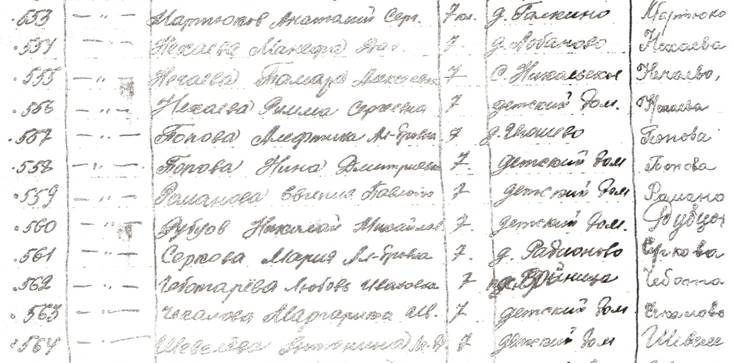 553 — " — Мартюков Анатолий Сер. 7 кл. д. Галкино Мартюко
554 — " — Нехаева Манефа 7. д. Лобаново Нехаева
555 — " — Нечаева Тамара Алексеевна 7 с. Никольское Нечаева,
556 — " — Нехаева Римма Сергеевна 7 детский дом. Нехаева
557 — " — Попова Ал-ровна 7 д. Попова
558 — " — Попова Нина Дмитриевна 7. детский дом Попова
559 — " — Романова Евгения 7 детский дом Романо
560 — " — Рубцов Николай Михайлов 7 детский дом. Рубцов
561 — " — Серкова Мария Ал-ровна 7. д. Родионово Серкова
562 — " — Чеботарёва Любовь Ивановна 7 Чебота
563 — " — Чекалова Маргарита 7 детский дом Чекалова
564 — " — Шевелёва Антонина 7 детский дом Шевеле